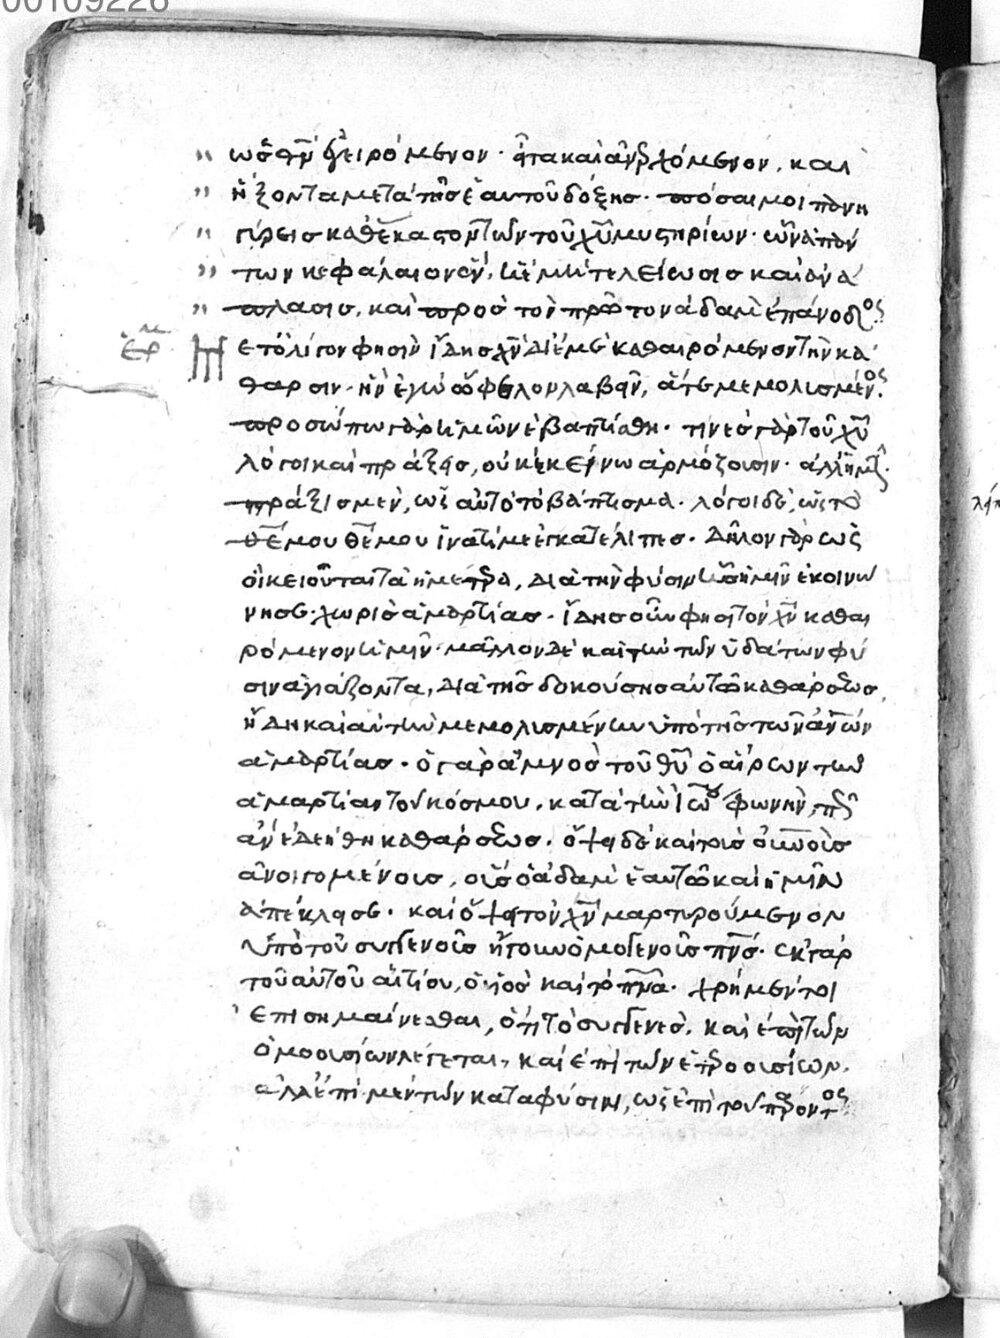 00109226
" ὡς θν̅ ἐγειρόμενον· εἶτα καὶ ἀνερχόμενον, καὶ
" ἥξοντα μετὰ τῆς ἑαυτοῦ δόξης· πόσαι μοι πανη
" γύρεις καθ' ἕκαστον τῶν τοῦ χυ̅ μυστηρίων· ὧν ἁπάν
" των κεφάλαιον ἕν, ἡ ἐμὴ τελείωσις καὶ ἀνά
" πλασις, καὶ πρὸς τὸν πρῶτον ἀδὰμ ἐπάνοδος
ἑρμ Μετ' ὀλίγον φησὶν ἴδῃς χν̅ δι' ἐμὲ καθαιρόμενον τὴν κά
θαρσιν· ἣν ἐγὼ ὤφειλον λαβεῖν, ἅτε μεμολυσμένος.
προσώπῳ γὰρ ἡμῶν ἐβαπτίσθη· τινὲς γὰρ τοῦ χυ̅
λόγοι καὶ πράξεις, οὐκ ἐκείνῳ ἁρμόζουσιν· ἀλλ' ἡμῖν·
πράξις μὲν, ὡς αὐτὸ τὸ βάπτισμα· λόγοι δὲ, ὡς τὸ
θε̅ μου θε̅ μου ἱνατί με ἐγκατέλιπες· δῆλον γὰρ ὡς
οἰκειοῦται τὰ ἡμέτερα, διὰ τὴν φύσιν ἧς ἡμῖν ἐκοινώ
νησε· χωρὶς ἁμαρτίας· ἴδῃς οὖν φησι τὸν χν̅ καθαι
ρόμενον ἡμῖν· μᾶλλον δὲ καὶ τὴν τῶν ὑδάτων φύ
σιν ἁγιάζοντα, διὰ τῆς δοκούσης αὐτῶ καθάρσεως,
ἤδη καὶ αὐτὴν μεμολυσμένην ὑπὸ τῆς τῶν ἀνω̅ν
ἁμαρτίας· ὁ γὰρ ἀμνὸς τοῦ θυ̅ ὁ αἴρων τὴν
ἁμαρτίαν τοῦ κόσμου, κατὰ τὴν ἰω̅ φωνὴν,
ἂν ἐδεήθη καθάρσεως· ὄψει δὲ καὶ τοῖς οὐνοῖς
ἀνοιγομένοις, οὓς ὁ ἀδὰμ ἑαυτῶ καὶ ἡμῖν
ἀπέκλεισε· καὶ ὄψει τὸν χν̅ μαρτυρούμενον
ὑπὸ τοῦ συγγενοῦς ἤτοι ὁμογενοῦς πνς̅· ἐκ γὰρ
τοῦ αὐτοῦ αἰτίου, ὁ υἱὸς καὶ τὸ πνα̅· χρὴ μέντοι
ἐπισημαίνεσθαι, ὅτι τὸ συγγενὲς, καὶ ἐπὶ τῶν
ὁμοουσίων λέγεται, καὶ ἐπὶ τῶν ἑτεροουσίων,
ἀλλ' ἐπὶ μὲν τῶν κατὰ φύσιν, ὡς ἐπὶ τοῦ παρόντος